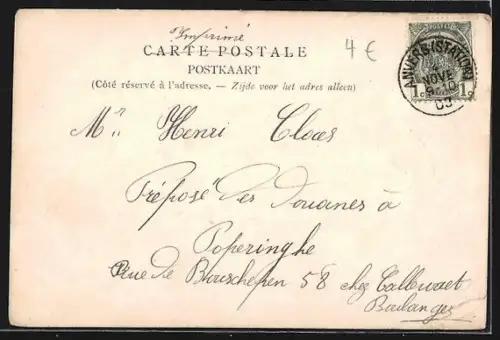 Imprimé
4 €
CARTE POSTALE
POSTKAART
(Côté réservé à l'adresse. — Zijde voor het adres alleen)
POSTES
ANVERS (STATION)
NOVE
9-10
03
1c 1c
Mr Henri Cloes
Préposé des Douanes à
Poperinghe
Rue de Bouschepen 58 chez Callewaet
Boulanger